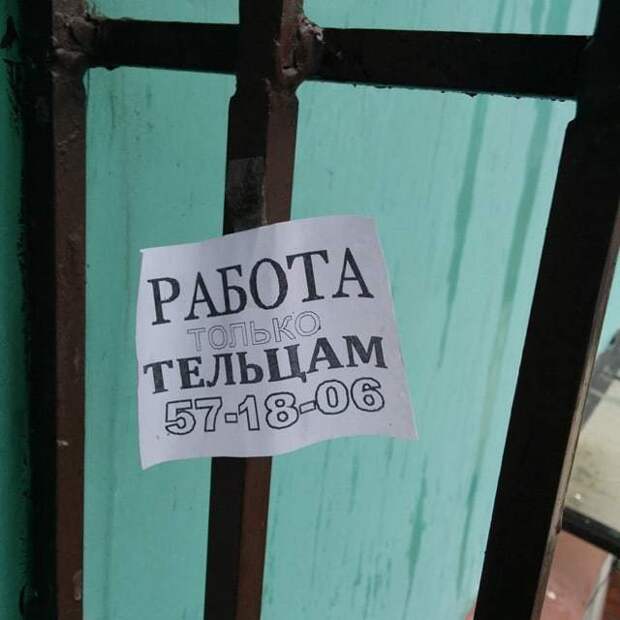 РАБОТА
ТОЛЬКО
ТЕЛЬЦАМ
57-18-06